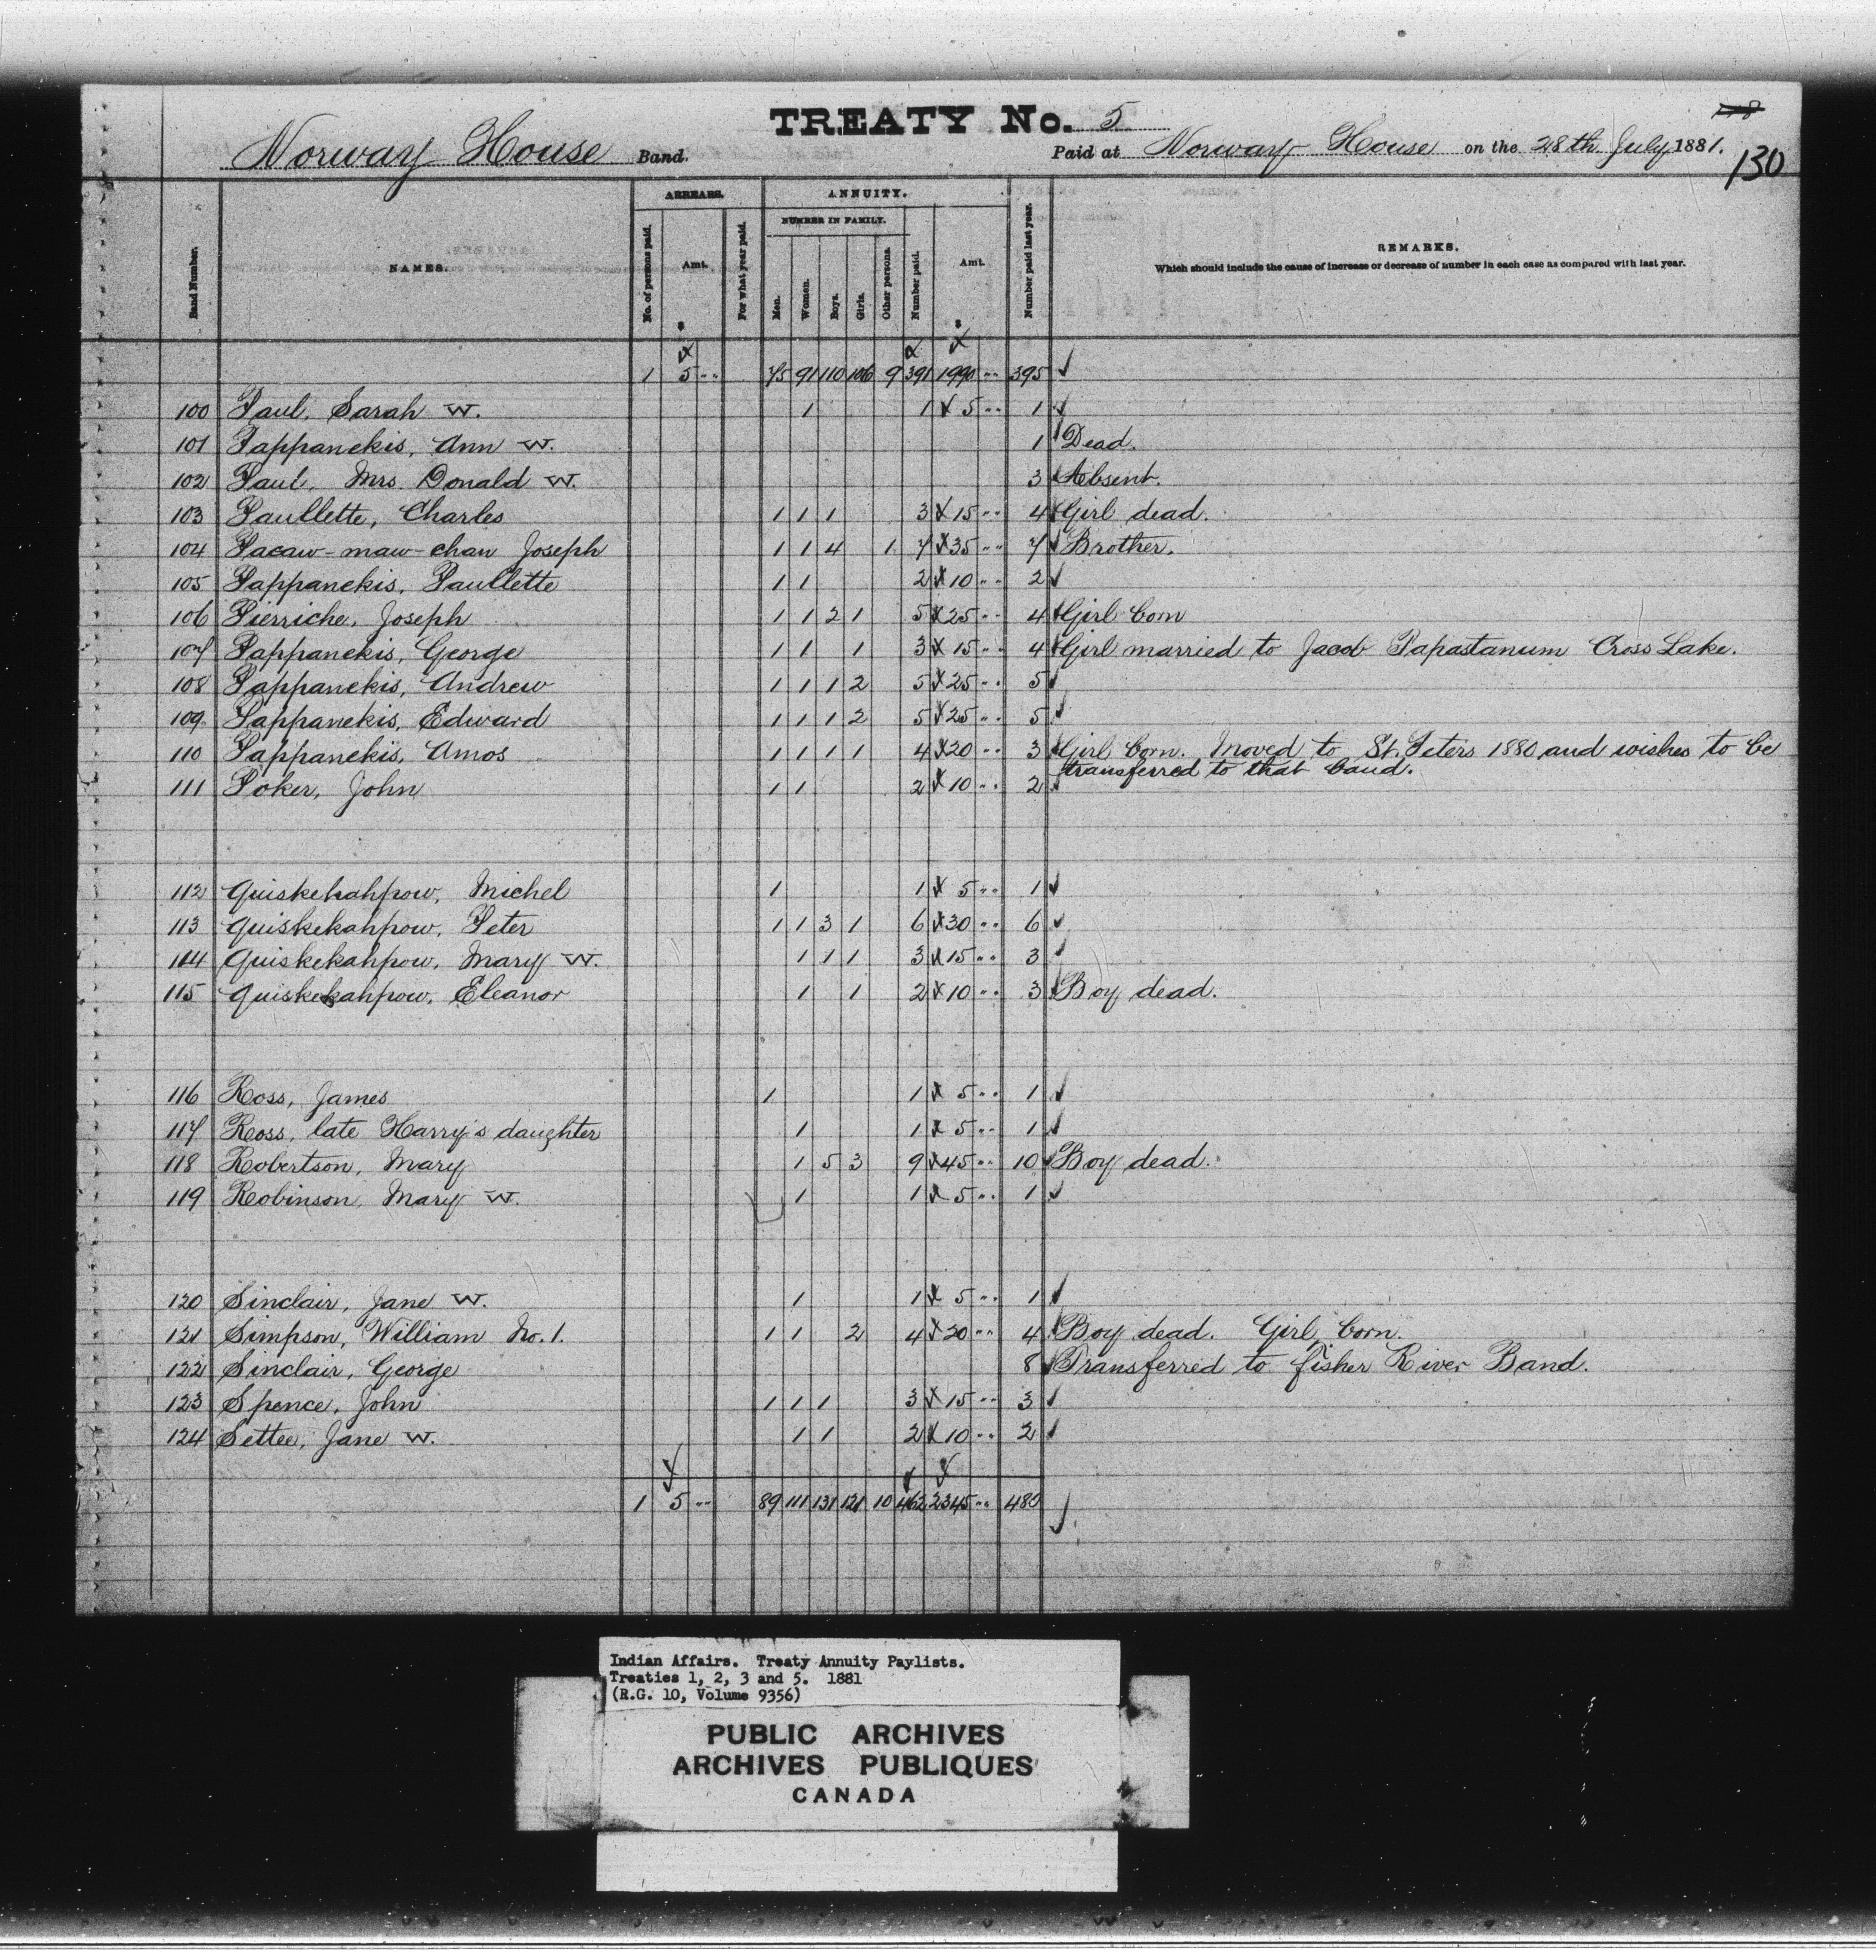 TREATY No. 5
Norway House Band.
Paid at Norway House on the 28th July 1881.
130
ARREARS.
ANNUITY.
NUMBER IN FAMILY.
Band Number.
NAMES.
No. of persons paid.
Amt.
For what year paid.
Men.
Women.
Boys.
Girls.
Other persons.
Number paid.
Amt.
Number paid last year.
REMARKS.
Which should include the cause of increase or decrease of number in each case as compared with last year.
$ $
1 5 " 75 91 110 106 9 391 1990 " 395 ✓
100 Paul, Sarah W. 1 1 5 " 1 ✓
101 Pappanekis, Ann W. 1 Dead.
102 Paul, Mrs. Donald W. 3 Absent.
103 Paullette, Charles 1 1 1 3 15 " 4 Girl dead.
104 Pacaw-maw-chan Joseph 1 1 4 1 7 35 " 7 Brother.
105 Pappanekis, Paullette 1 1 2 10 " 2 ✓
106 Pierriche, Joseph 1 1 2 1 5 25 " 4 Girl born
107 Pappanekis, George 1 1 1 3 15 " 4 Girl married to Jacob Papastanum Cross Lake.
108 Pappanekis, Andrew 1 1 1 2 5 25 " 5 ✓
109 Pappanekis, Edward 1 1 1 2 5 25 " 5 ✓
110 Pappanekis, Amos 1 1 1 1 4 20 " 3 Girl born. Moved to St. Peters 1880 and wishes to be
transferred to that band.
111 Poker, John 1 1 2 10 " 2 ✓
112 Quiskekahpow, Michel 1 1 5 " 1 ✓
113 Quiskekahpow, Peter 1 1 3 1 6 30 " 6 ✓
114 Quiskekahpow, Mary W. 1 1 1 3 15 " 3 ✓
115 Quiskekahpow, Eleanor 1 1 2 10 " 3 Boy dead.
116 Ross, James 1 1 5 " 1 ✓
117 Ross, late Harry's daughter 1 1 5 " 1 ✓
118 Robertson, Mary 1 5 3 9 45 " 10 Boy dead.
119 Robinson, Mary W. 1 1 5 " 1 ✓
120 Sinclair, Jane W. 1 1 5 " 1 ✓
121 Simpson, William No. 1. 1 1 2 4 20 " 4 Boy dead. Girl born.
122 Sinclair, George 8 Transferred to Fisher River Band.
123 Spence, John 1 1 1 3 15 " 3 ✓
124 Settee, Jane W. 1 1 2 10 " 2 ✓
1 5 " 89 111 131 121 10 462 2345 " 480 ✓
Indian Affairs. Treaty Annuity Paylists.
Treaties 1, 2, 3 and 5. 1881
(R.G. 10, Volume 9356)
PUBLIC ARCHIVES
ARCHIVES PUBLIQUES
CANADA